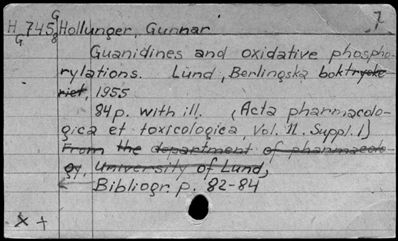 H G 745 G 8 Hollunger, Gunnar 7
Guanidines and oxidative phospho-
rylations. Lund, Berlingska boktrycke-
riet, 1955
84 p. with ill. (Acta pharmacolo-
gica et toxicologica, Vol. 11. Suppl. 1)
From the department of pharmacolo-
gy, University of Lund,
Bibliogr. p. 82-84
x +